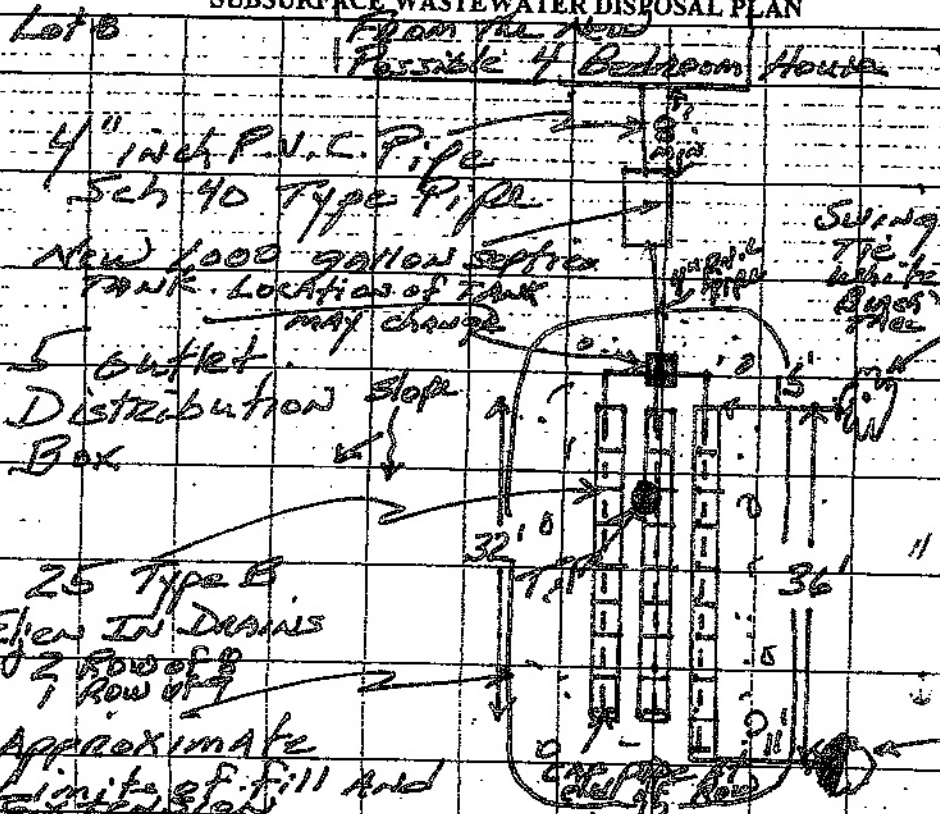 SUBSURFACE WASTEWATER DISPOSAL PLAN
Lot 8
From the New
Possible 4 Bedroom House
4" inch P.V.C. Pipe
Sch 40 Type Pipe
New 1000 gallon septic
TANK. Location of TANK
may change
4" P.V.C.
Pipe
Swing
Tie
White
Tree
5 outlet
Distribution
Box
slope
15'
32'
36'
T.P.
25 Type B
Eljen In Drains
2 Row of 8
1 Row of 9
11'
Approximate
Limits of fill And
Extension